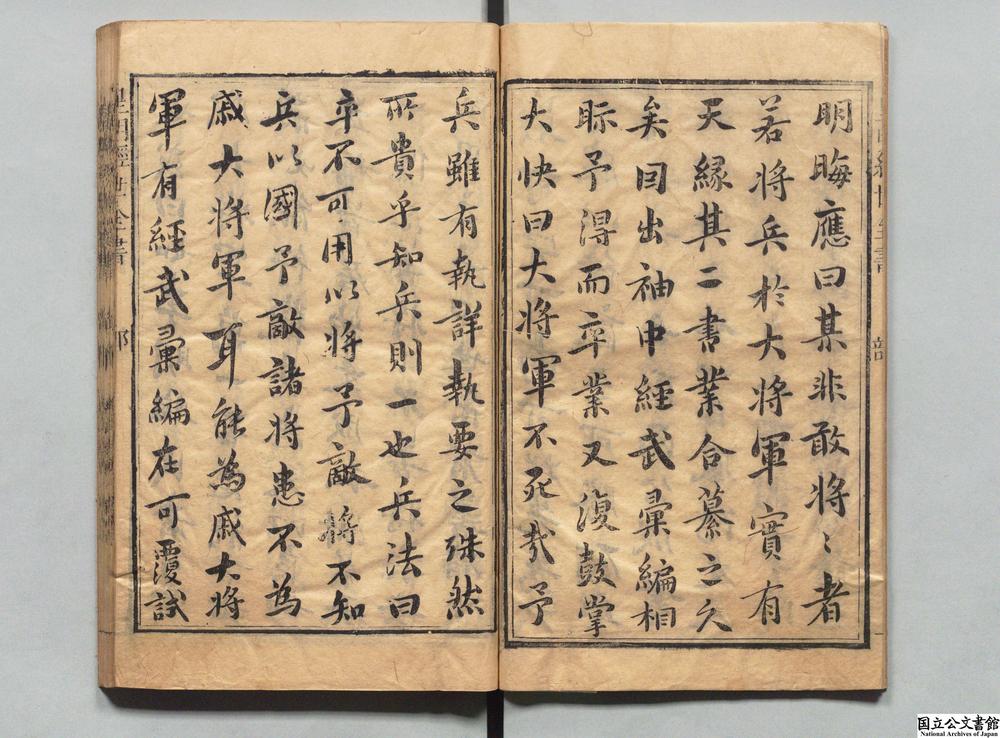 明晦應曰某非敢將〻者
若將兵於大將軍實有
天緣其二書業合纂之久
矣因出袖中經武彙編相
眎予得而卒業又復鼓掌
大快曰大將軍不死哉予
兵雖有執詳執要之殊然
所貴乎知兵則一也兵法曰
卒不可用以將予敵將不知
兵以國予敵諸將患不為
戚大將軍耳能為戚大將
軍有經武彙編在可覆試
國立公文書館
National Archives of Japan